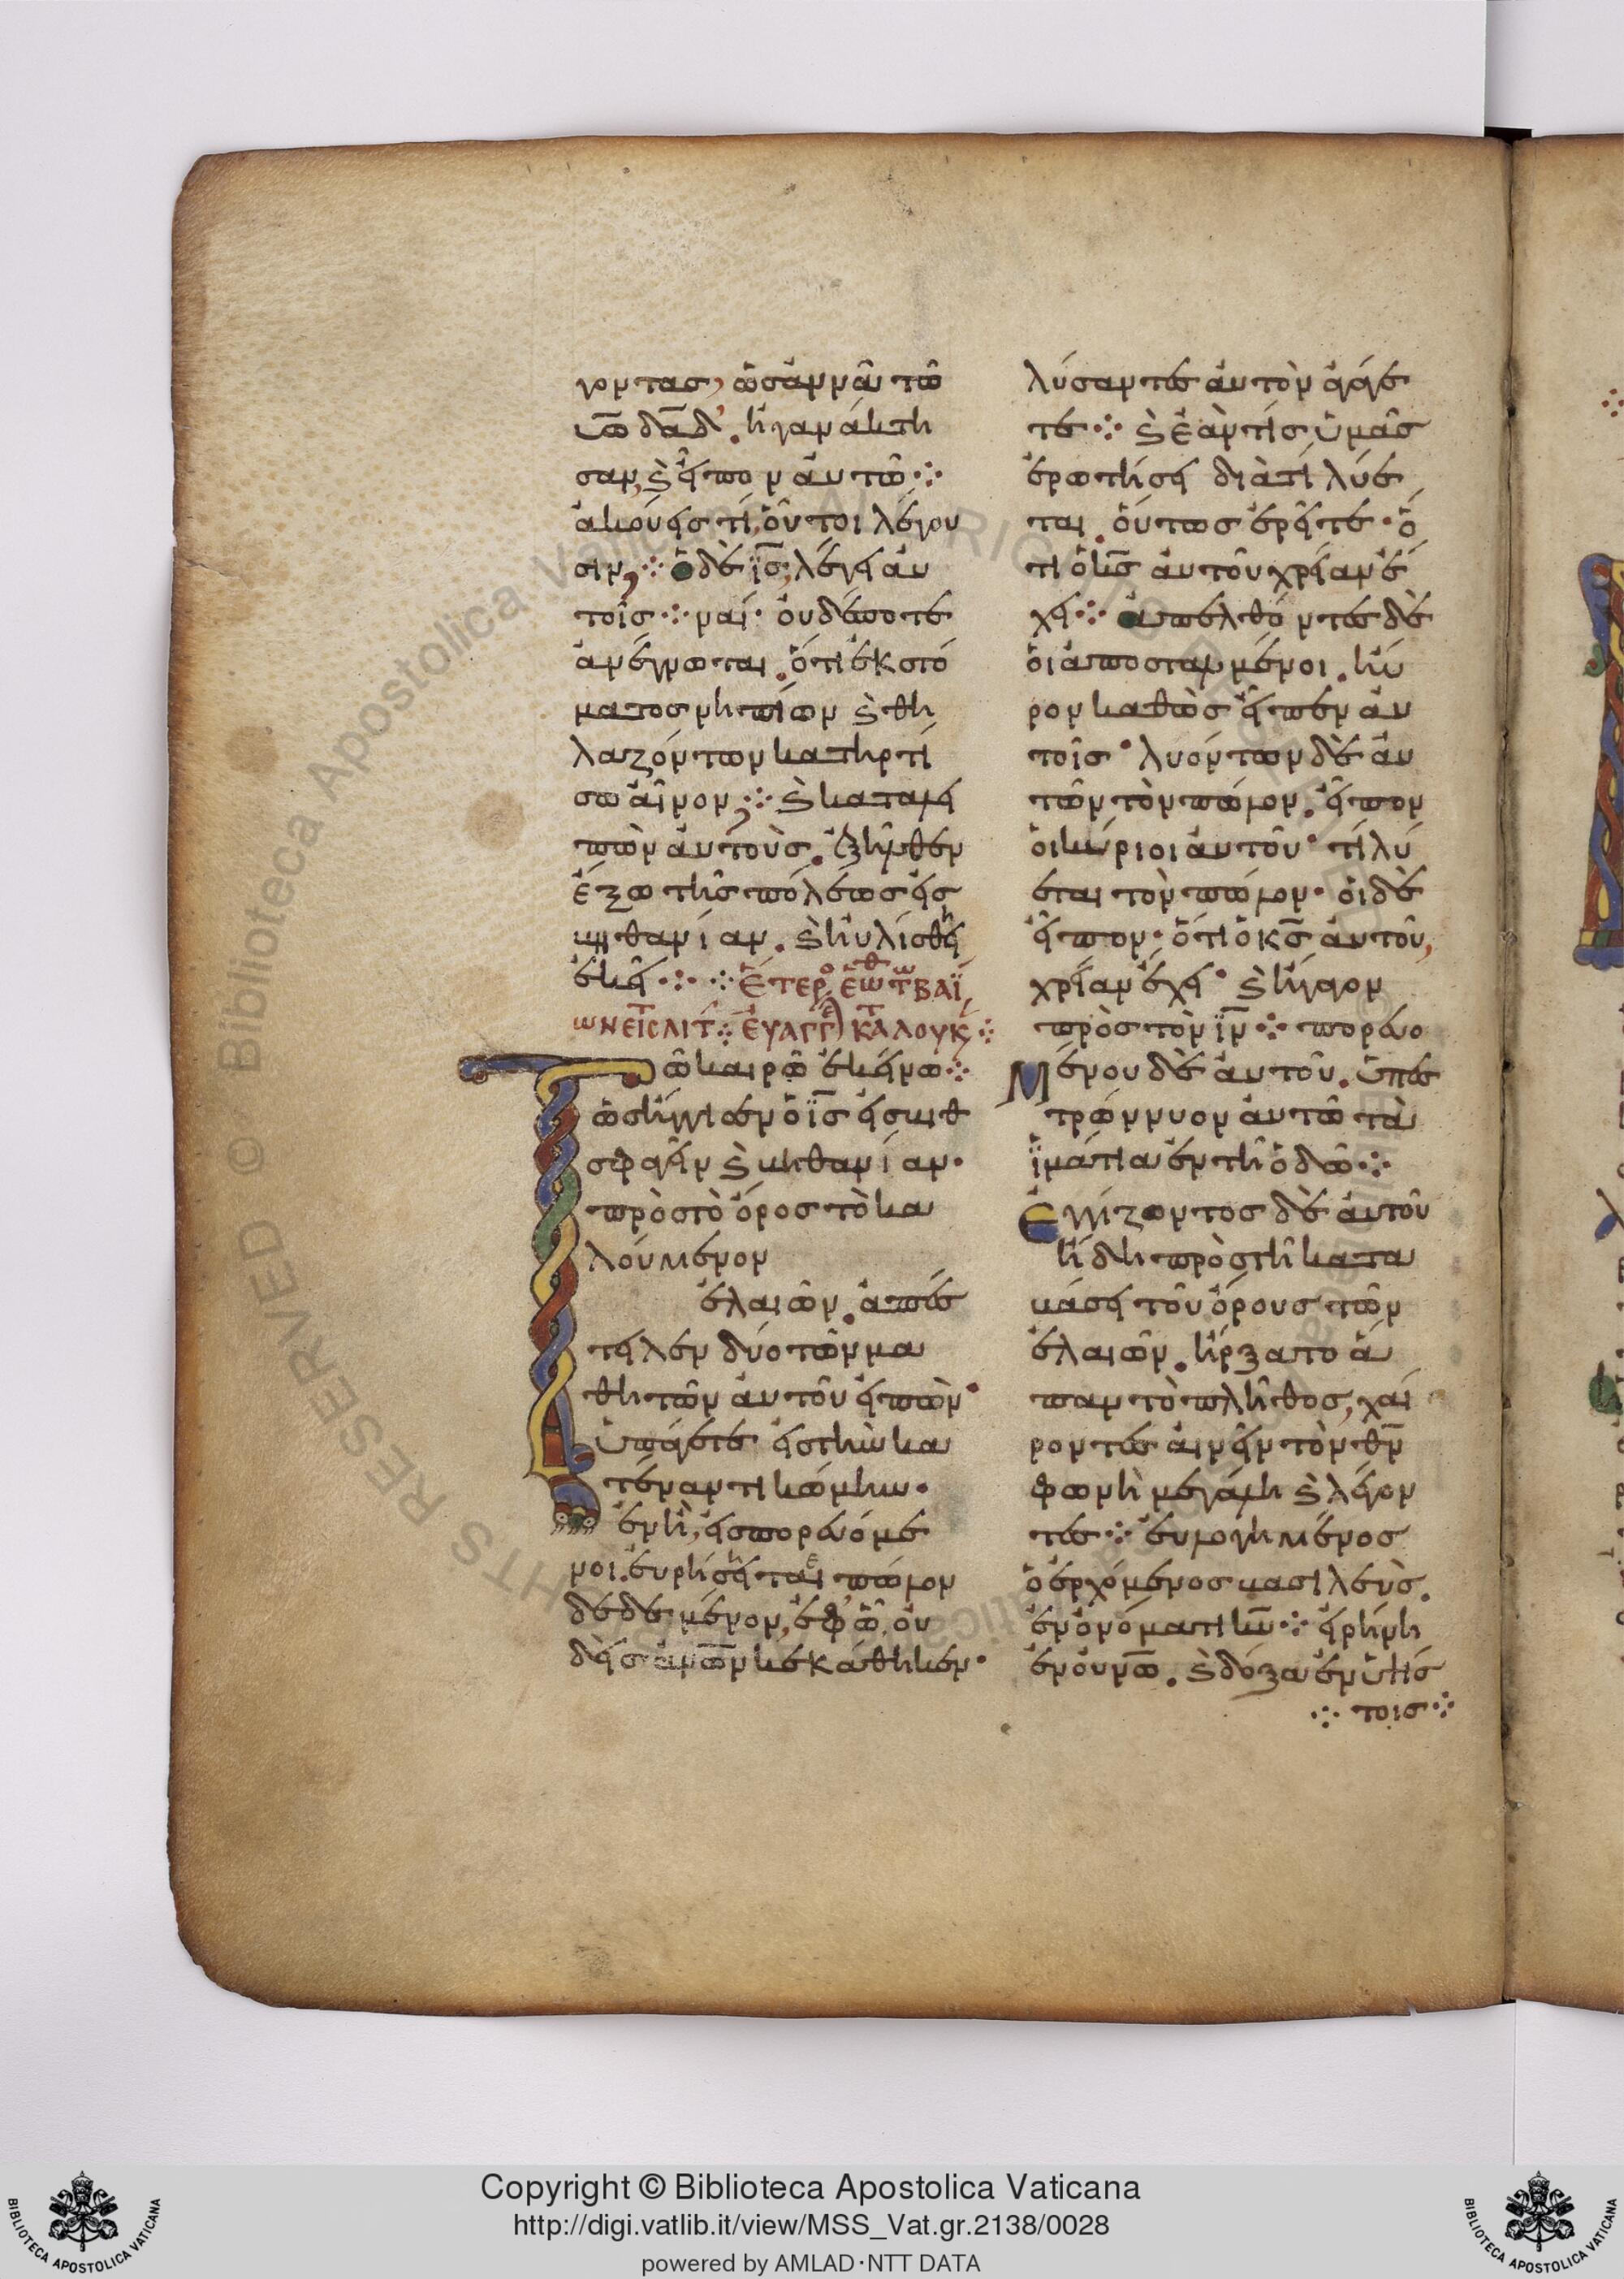 γοντας, ὡσάννα τῶ
υ̅ω̅ δα̅δ. ἠγανάκτη
σαν, ϗ εἶπον αὐτῶ ⁘
ἀκούεις τί οὗτοι λέγου
σιν, ⁘ ὁ δὲ ι̅ς̅ λέγει αὐ
τοῖς ⁘ ναί· οὐδέποτε
ἀνέγνωται. ὅτι ἐκ στό
ματος νηπίων ϗ θη
λαζόντων κατηρτί
σω αἶνον, ⁘ ϗ καταλι
πὼν αὐτοὺς. ἐξῆλθεν
ἔξω τῆς πόλεως εἰς
βηθανίαν. ϗ ηὐλίσθη
ἐκεῖ ⁘ ⁘ ἕτερ εω τ βαΐ
ων εἰς λιτ ⁘ εὐαγγ κατα λουκ ⁘
Τῶ καιρῶ ἐκείνω ⁘
ὡς ἤγγισεν ὁ ι̅ς̅ εἰς βηθ
σφαγὴν ϗ βηθανίαν·
πρὸς τὸ ὄρος τὸ κα
λούμενον
ἐλαιῶν. ἀπέσ
τειλεν δύο τῶν μα
θητῶν αὐτοῦ εἰπών·
ὑπάγετε εἰς τὴν κα
τέναντι κώμην·
ἐν ἧ, εἰσπορευόμε
νοι. εὑρήσετε πῶλον
δεδεμένον, ἐφ' ὧ, οὐ
δεὶς ἀν̅ω̅ν κεκάθηκεν·
λύσαντες αὐτὸν ἀγάγε
τε ⁘ ϗ ἐὰν τίς ὑμᾶς
ἐρωτήσει διὰ τί λύε
ται. οὕτως ἐρεῖτε· ὅ
τι ὁ κ̅ς̅ αὐτοῦ χρείαν ἔ
χει ⁘ ἀπελθόντες δὲ
οἱ ἀπεσταλμένοι. ηὗ
ρον καθὼς εἶπεν αὐ
τοῖς· λυόντων δὲ αὐ
τῶν τὸν πῶλον. εἶπον
οἱ κύριοι αὐτοῦ· τί λύ
εται τὸν πῶλον· οἱ δὲ
εἶπον· ὅτι ὁ κ̅ς̅ αὐτοῦ,
χρείαν ἔχει· ϗ ἤγαγον
πρὸς τὸν ι̅ν̅ ⁘ πορευο
Μένου δὲ αὐτοῦ. ὑπεσ
τρώννυον αὐτῶ τὰ
ἱμάτια ἐν τῆ ὁδῶ ⁘
Ἐγγίζοντος δὲ αὐτοῦ
ἤδη πρὸς τῆ κατα
βάσει τοῦ ὄρους τῶν
ἐλαιῶν. ἤρξατο ἅ
παν τὸ πλῆθος, χαί
ροντες αἰνεῖν τὸν θ̅ν̅
φωνῆ μεγάλη ϗ λέγον
τες ⁘ εὐλογημένος
ὁ ἐρχόμενος βασιλεὺς.
ἐν ὀνόματι κ̅υ̅ ⁘ εἰρήνη
ἐν οὐν̅ω̅. ϗ δόξα ἐν ὑψίσ
⁘ τοις ⁘
Copyright © Biblioteca Apostolica Vaticana
http://digi.vatlib.it/view/MSS_Vat.gr.2138/0028
powered by AMLAD·NTT DATA